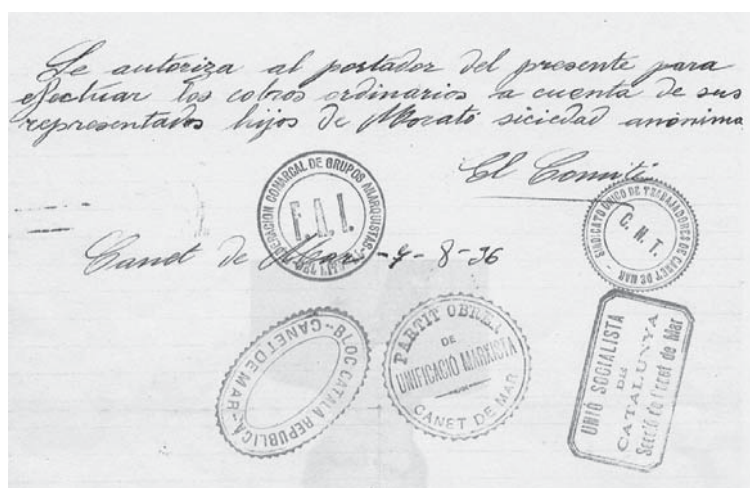 Se autoriza al portador del presente para
efectuar los cobros ordinarios a cuenta de sus
representados hijos de Morató siciedad anónima
El Comité
FEDERACION COMARCAL DE GRUPOS ANARQUISTAS
F.A.I.
SINDICATO UNICO DE TRABAJADORES DE CANET DE MAR
C. M. T.
Canet de Mar - 9 - 8-36
BLOC CATALA REPUBLICA
CANET DE MAR
PARTIT OBRER
DE
UNIFICACIÓ MARXISTA
CANET DE MAR
UNIÓ SOCIALISTA
DE
CATALUNYA
Secció de Canet de Mar